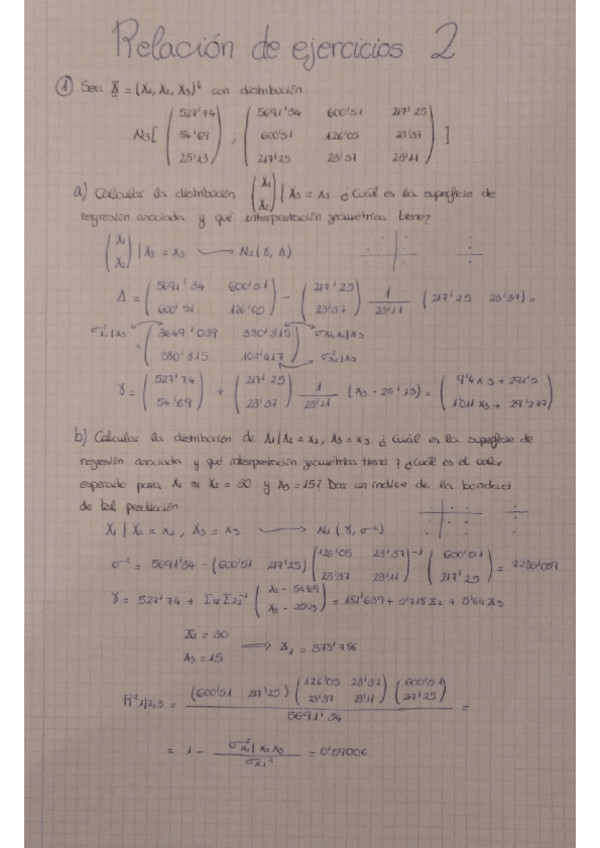 Relación de ejercicios 2
① Sea X = (X₁, X₂, X₃)ᵗ con distribución
N₃[ (527'74 ; 54'69 ; 25'13) ; (5691'34 600'51 217'25 ; 600'51 126'05 23'37 ; 217'25 23'37 23'11) ]
a) Calcular la distribución (X₁ X₂) | X₃ = x₃ ¿Cuál es la superficie de
regresión asociada y qué interpretación geométrica tiene?
(X₁ X₂) | X₃ = x₃ ⟶ N₂(γ, Δ)
Δ = (5691'34 600'51 ; 600'51 126'05) − (217'25 ; 23'37) 1/23'11 (217'25 23'37) =
σ²x₁|x₃ = (3649'039 380'815 ; 380'815 102'417) σx₁x₂|x₃ σ²x₂|x₃
γ = (527'74 ; 54'69) + (217'25 ; 23'37) 1/23'11 (x₃ − 25'13) = (9'4 x₃ + 291'5 ; 1'011 x₃ + 29'277)
b) Calcular la distribución de X₁|X₂ = x₂, X₃ = x₃ ¿Cuál es la superficie de
regresión asociada y qué interpretación geométrica tiene? ¿Cuál es el valor
esperado para X₁ si X₂ = 30 y X₃ = 15? Dar un índice de la bondad
de tal predicción
X₁ | X₂ = x₂, X₃ = x₃ ⟶ N₁(γ, σ²)
σ² = 5691'34 − (600'51 217'25) (126'05 23'37 ; 23'37 23'11)⁻¹ (600'51 ; 217'25) =
γ = 527'74 + Σ₁₂ Σ₂₂⁻¹ (x₂ − 54'69 ; x₃ − 25'13) = 182'639 + 3'718 x₂ + 5'64 x₃
= 30
x₃ = 15 ⟹ x₁ = 373'786
R²1/2,3 = (600'51 217'25) (126'05 23'37 ; 23'37 23'11) (600'51 ; 217'25) / 5691'34 =
= 1 − σ²x₁|x₂x₃ / σx₁² = 0'59006